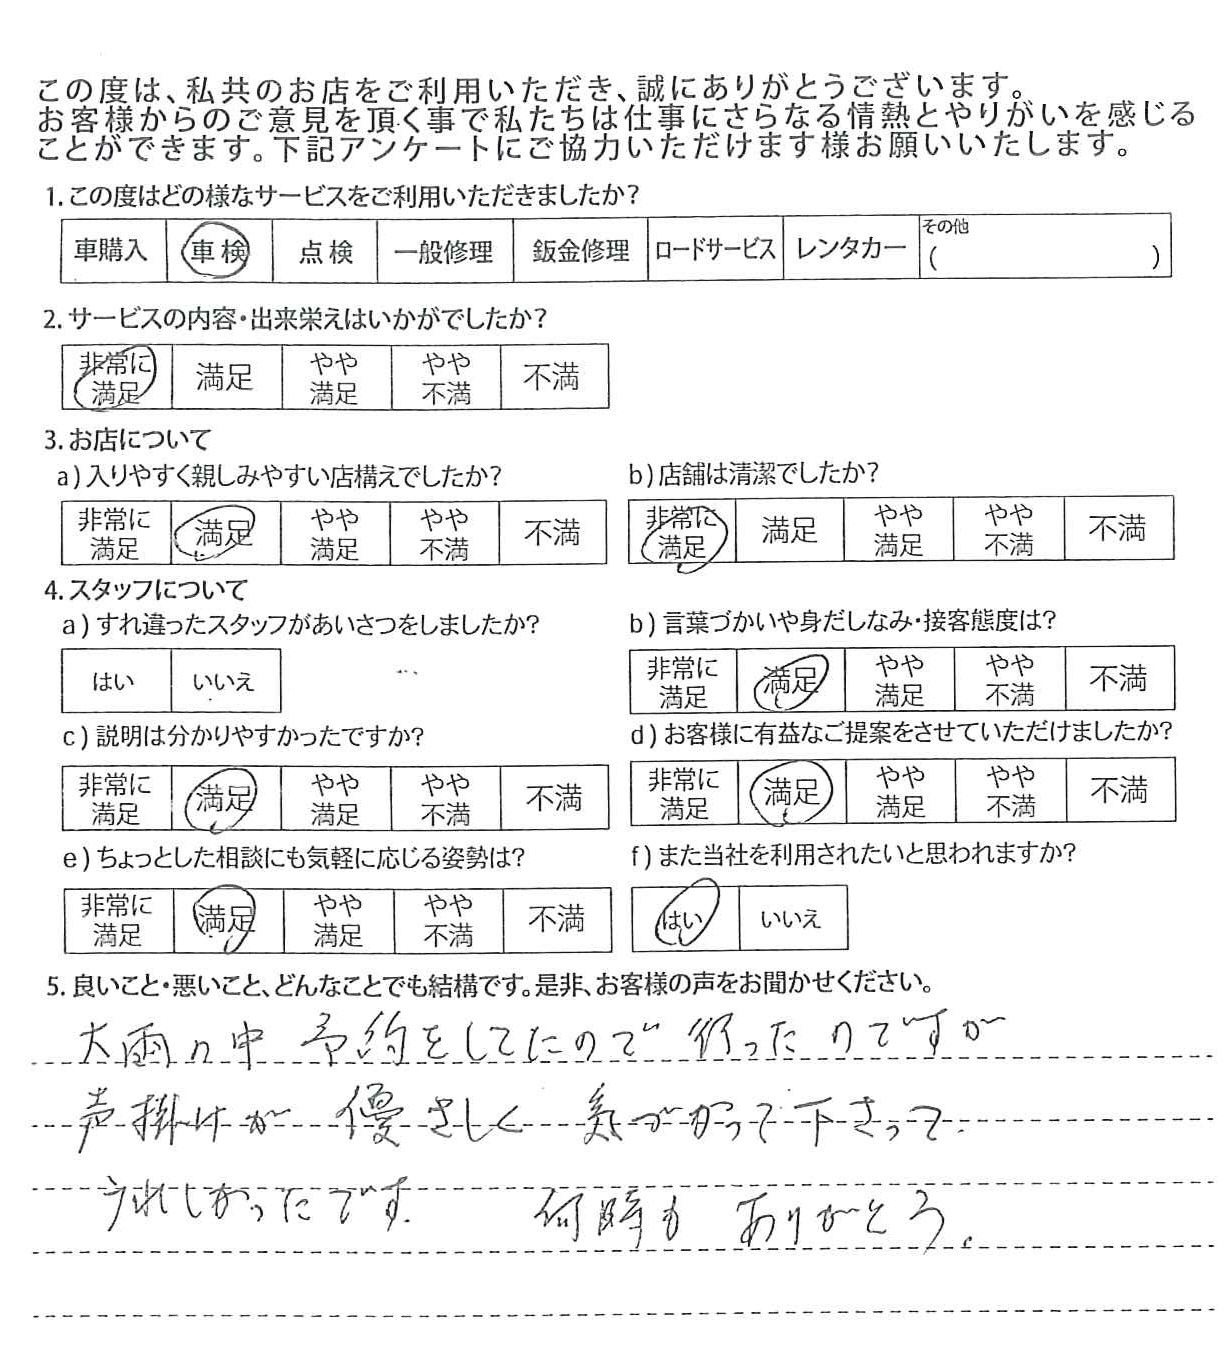 この度は、私共のお店をご利用いただき、誠にありがとうございます。
お客様からのご意見を頂く事で私たちは仕事にさらなる情熱とやりがいを感じる
ことができます。下記アンケートにご協力いただけます様お願いいたします。
1.この度はどの様なサービスをご利用いただきましたか?
車購入 車検 点検 一般修理 鈑金修理 ロードサービス レンタカー その他
( )
2.サービスの内容・出来栄えはいかがでしたか?
非常に満足 満足 やや満足 やや不満 不満
3.お店について
a)入りやすく親しみやすい店構えでしたか?
非常に満足 満足 やや満足 やや不満 不満
b)店舗は清潔でしたか?
非常に満足 満足 やや満足 やや不満 不満
4.スタッフについて
a)すれ違ったスタッフがあいさつをしましたか?
はい いいえ
b)言葉づかいや身だしなみ・接客態度は?
非常に満足 満足 やや満足 やや不満 不満
c)説明は分かりやすかったですか?
非常に満足 満足 やや満足 やや不満 不満
d)お客様に有益なご提案をさせていただけましたか?
非常に満足 満足 やや満足 やや不満 不満
e)ちょっとした相談にも気軽に応じる姿勢は?
非常に満足 満足 やや満足 やや不満 不満
f)また当社を利用されたいと思われますか?
はい いいえ
5.良いこと・悪いこと、どんなことでも結構です。是非、お客様の声をお聞かせください。
大雨の中 予約をしてたので 行ったのですが
声掛けが 優さしく 気づかって下さって
うれしかったです. 何時も ありがとう。